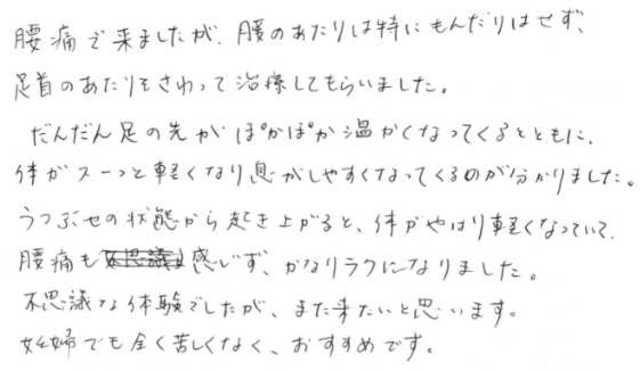 腰痛で来ましたが、腰のあたりは特にもんだりはせず、
足首のあたりをさわって治療してもらいました。
だんだん足の先がぽかぽか温かくなってくるとともに、
体がスーっと軽くなり息がしやすくなってくるのが分かりました。
うつぶせの状態から起き上がると、体がやはり軽くなっていて、
腰痛も感じず、かなりラクになりました。
不思議な体験でしたが、また来たいと思います。
妊婦でも全く苦しくなく、おすすめです。